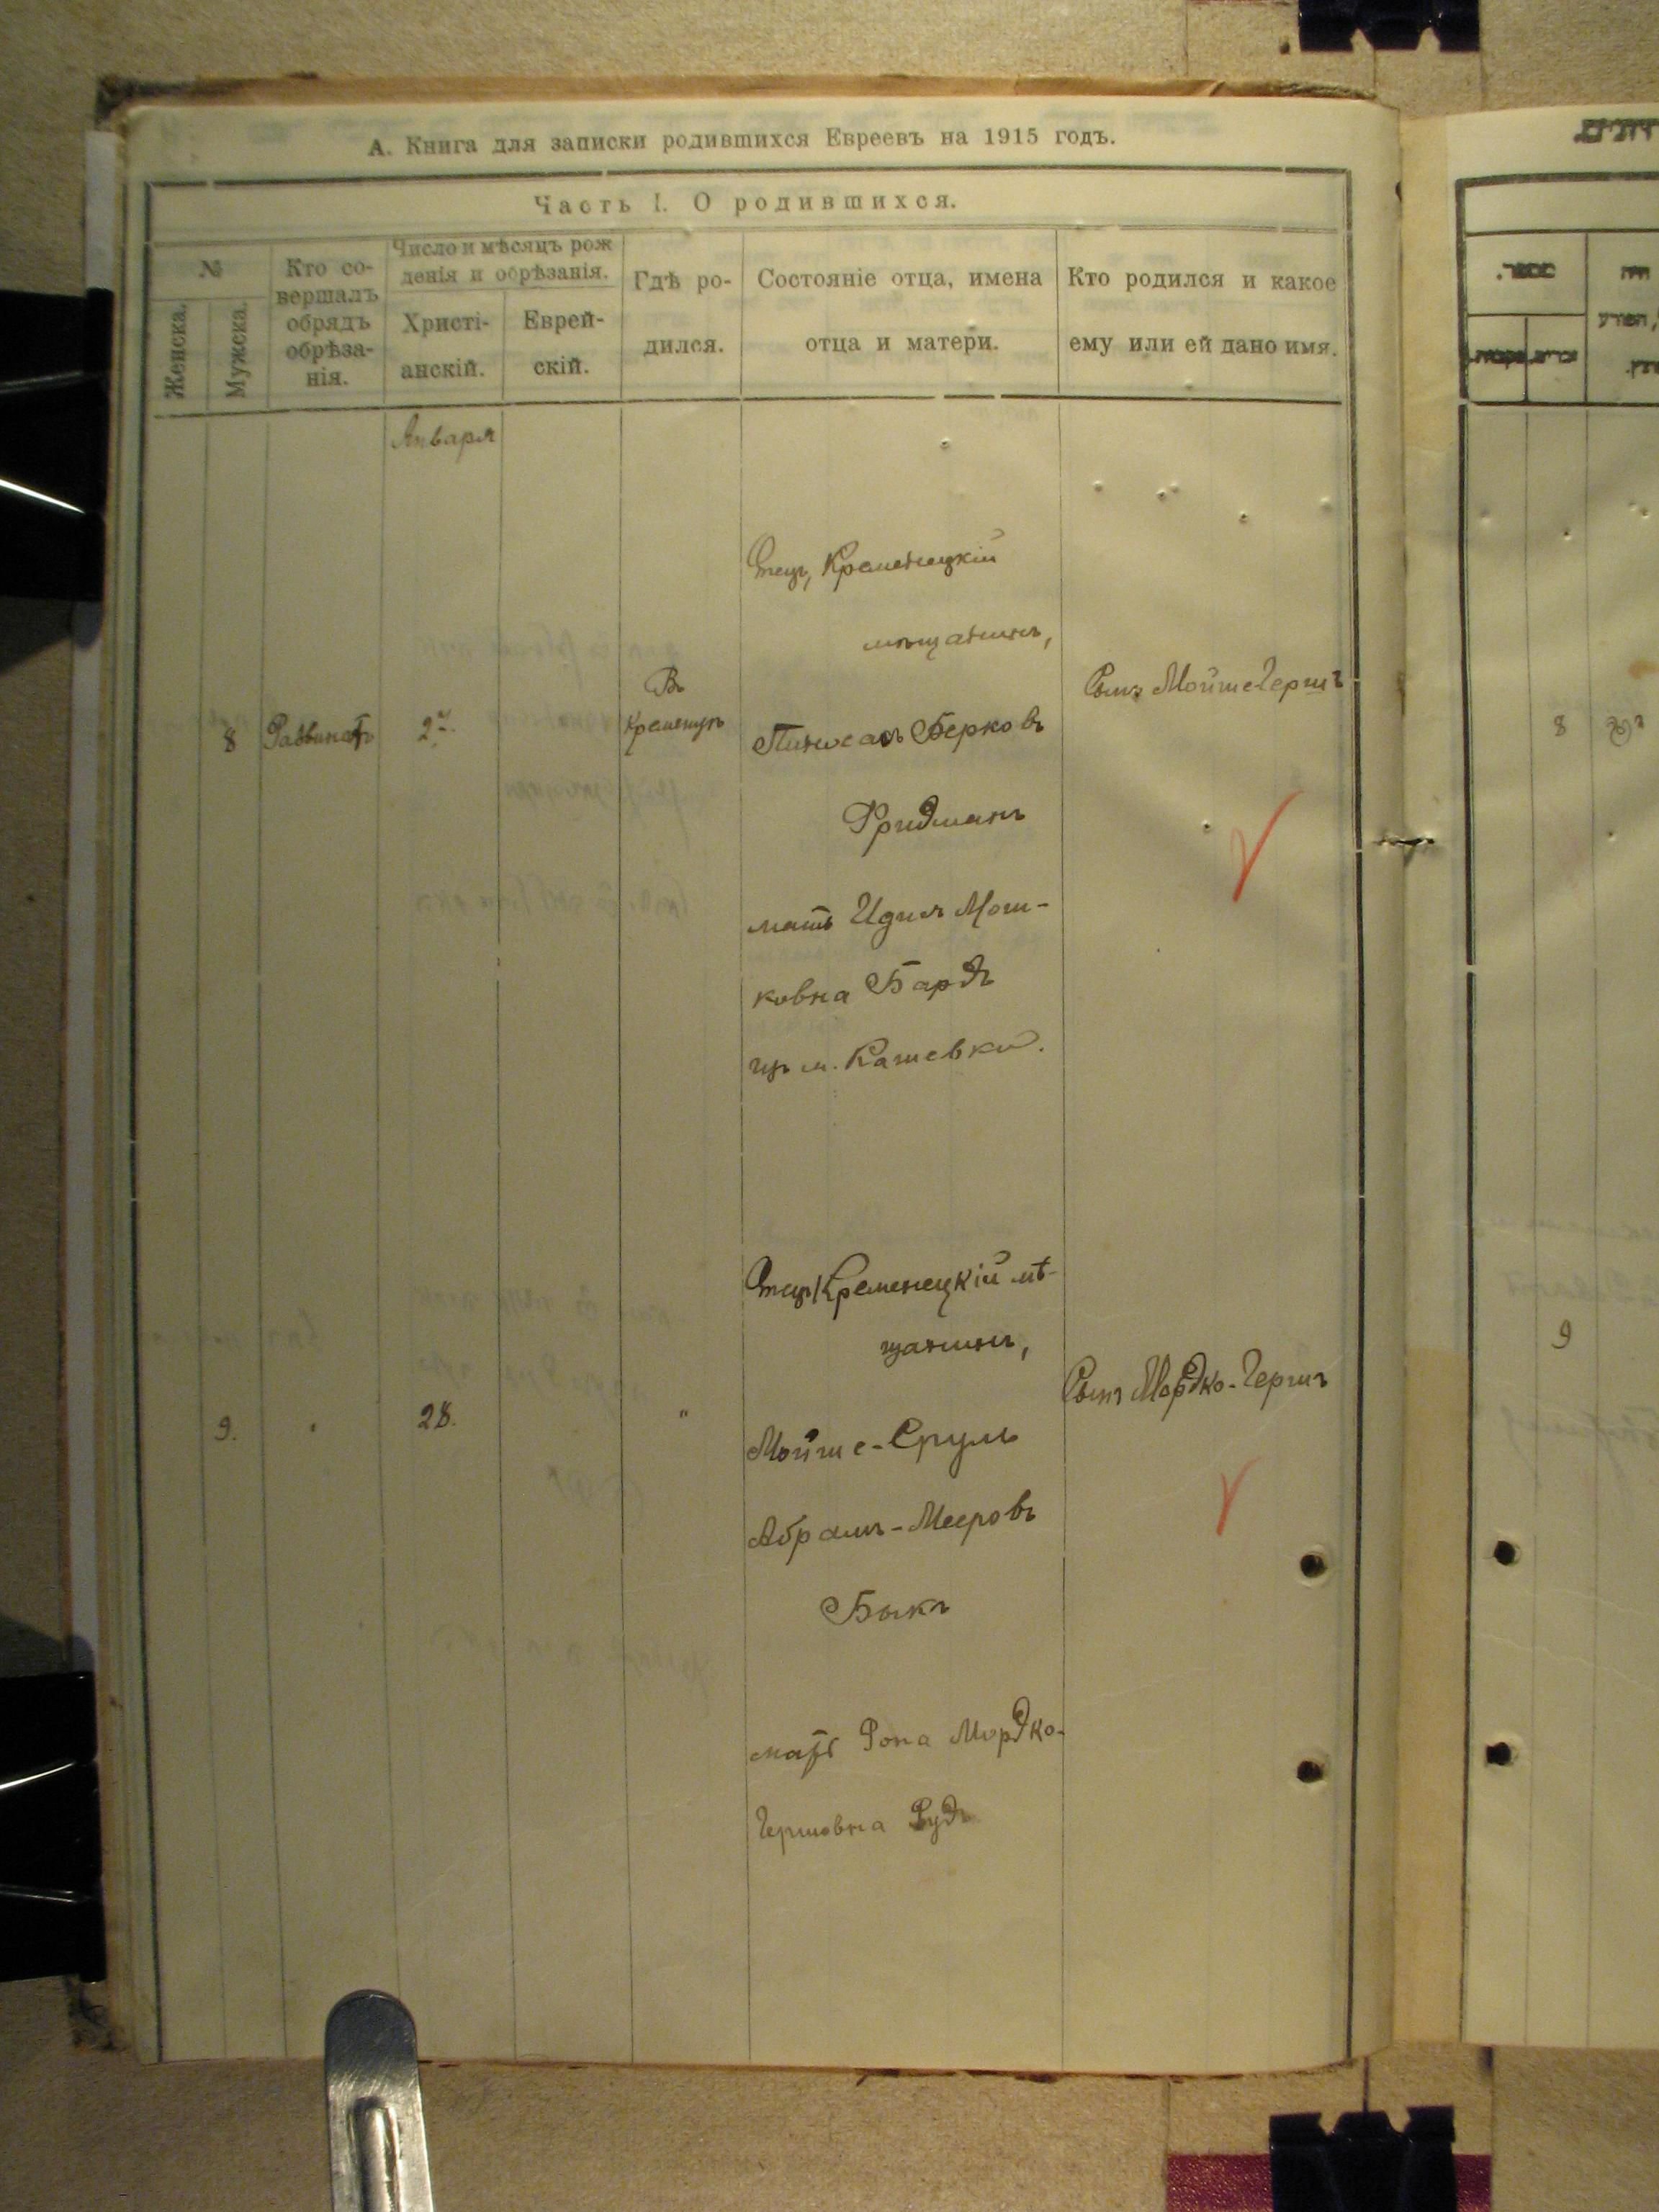 А. Книга для записки родившихся Евреевъ на 1915 годъ.
Часть I. О родившихся.
№
Женска.
Мужска.
Кто со-
вершалъ
обрядъ
обрѣза-
нія.
Число и мѣсяцъ рож
денія и обрѣзанія.
Христі-
анскій.
Еврей-
скій.
Гдѣ ро-
дился.
Состояніе отца, имена
отца и матери.
Кто родился и какое
ему или ей дано имя.
Января
8
Въ
Кременцѣ
Отецъ, Кременецкій
мѣщанинъ,
Пинхасъ Берковъ
Фридманъ
мать Идия Мош-
ковна Бардъ
изъ м. Кашевки.
Сынъ Мойше-Гершъ
9.
28.
"
Отецъ Кременецкій мѣ-
щанинъ,
Мойше-Сруль
Абрамъ-Мееровъ
Быкъ
мать Рона Мордко-
Гершовна Рудъ
Сынъ Мордко-Гершъ
8
9